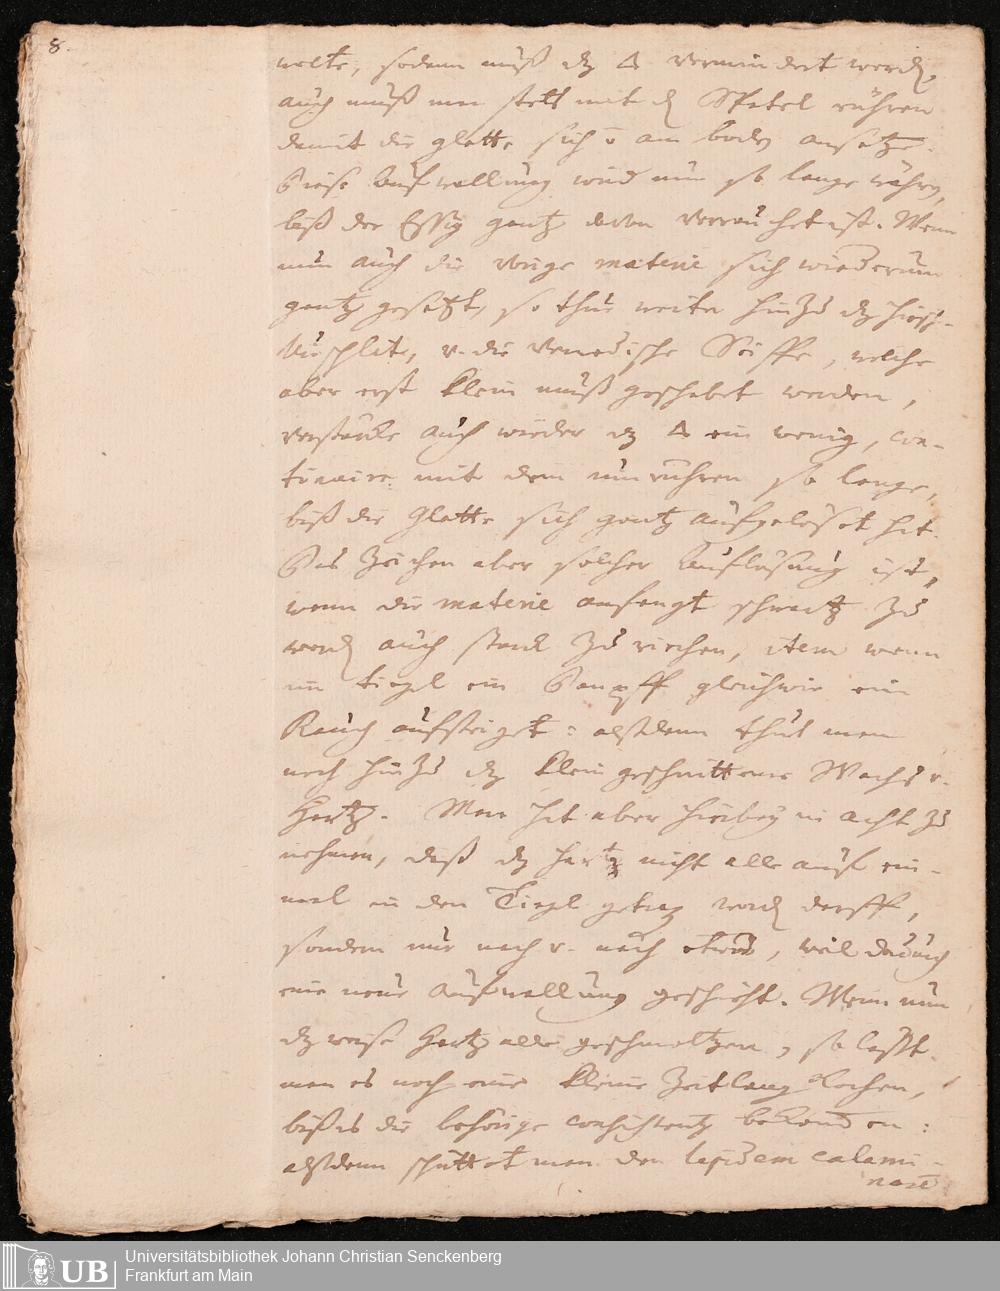 8.
wolte, sodann muß dz 🜂 vermindert werd,
auch muß man stets mit d Spatel rühren
damit die glette sich ü am bod ansetze.
Diese Aufwallung wird nun so lange währ,
biß der Eßig gantz davon verrauchet ist. Wenn
nun auch die vorige materie sich wiederum
gantz gesetzt, so thue weiter hinzu dz hirsch-
Unschlit, v. die Venedische Seiffe, welche
aber erst klein muß geschabet werden,
verstärke auch wieder dz 🜂 ein wenig, con-
tinuire mit dem umrühren so lange,
biß die Glette sich gantz aufgelöset hat.
Das Zeichen aber solcher Auflösung ist,
wenn die materie anfengt schwartz zu
werd auch starck zu riechen, item wenn
im tiegel ein Dampff gleichwie ein
Rauch aufsteiget: alßdann thut man
noch hinzu dz klein geschnittene Wachs v.
Hartz. Man hat aber hierbey in acht zu
nehmen, daß dz hartz nicht alle auf ein-
mal in den Tiegel getrag werd darff,
sondern nur nach v. nach etwas, weil dadurch
eine neue Aufwallung geschieht. Wenn nun
dz weise Hartz alles geschmoltzen, so laßt
man es noch eine kleine Zeitlang kochen,
biß es die behörige consistentz bekomen:
alßdann schüttet man den lapidem calami-
narē
Universitätsbibliothek Johann Christian Senckenberg
Frankfurt am Main
UB